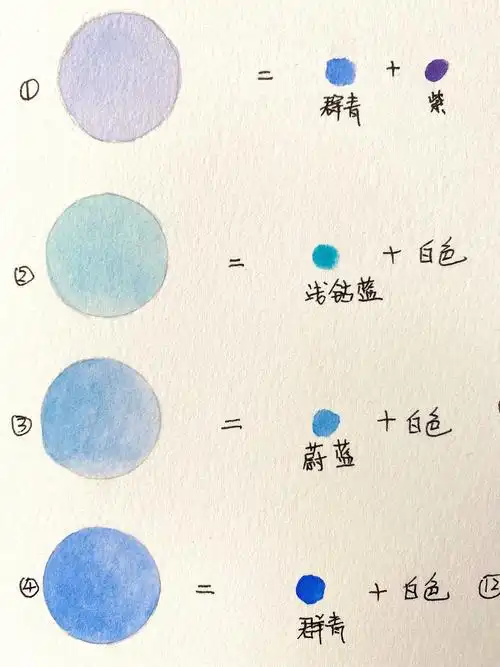 ① = + 
群青 紫
② = + 白色
浅钴蓝
③ = + 白色
蔚蓝
④ = + 白色 ⑫
群青